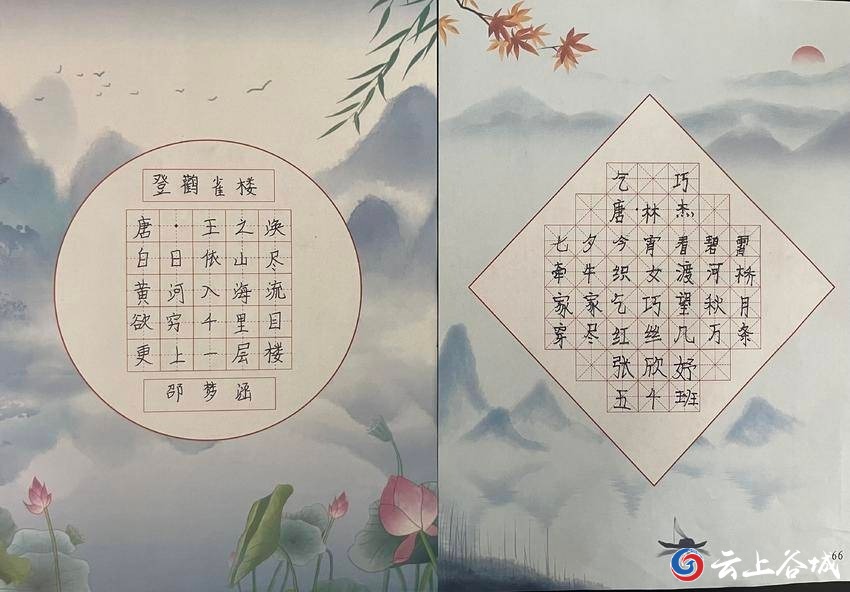 登鹳雀楼
唐·王之涣
白日依山尽
黄河入海流
欲穷千里目
更上一层楼
邵梦涵
乞巧
唐·林杰
七夕今宵看碧霄
牵牛织女渡河桥
家家乞巧望秋月
穿尽红丝几万条
张欣妤
五4班
66
云上谷城